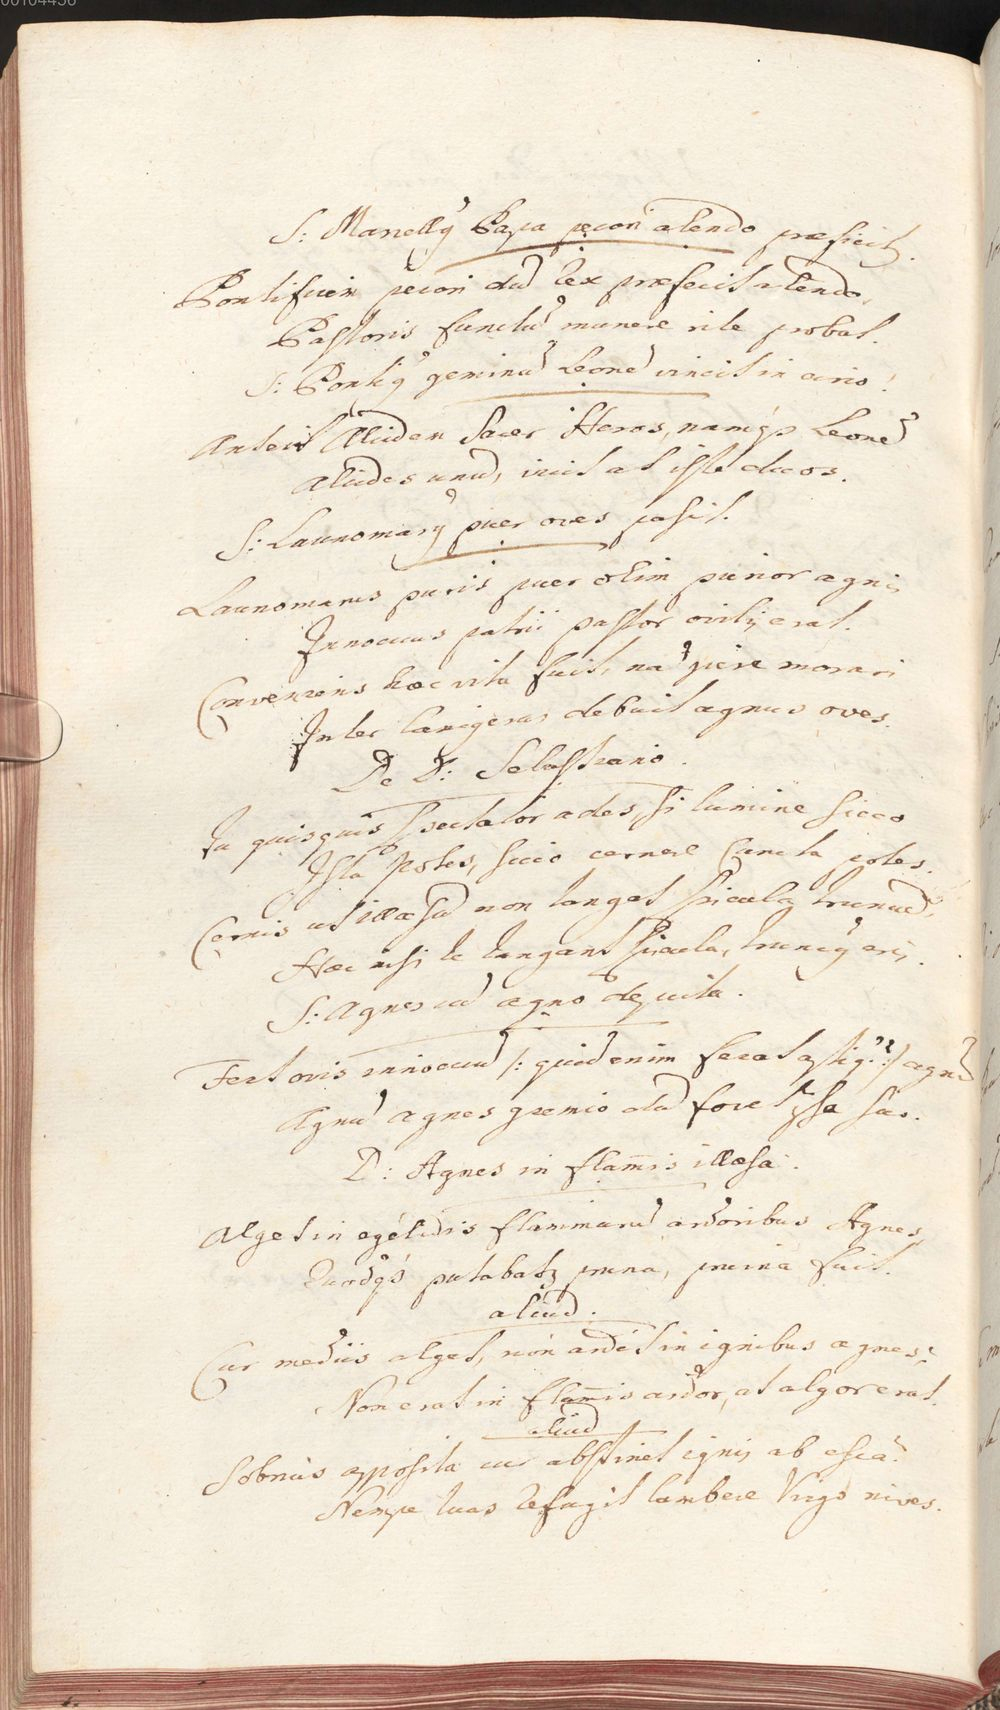 00104456
S: Marcellꝰ Papa pecori alendo præficit.
Pontificem pecori dū lex præfecit alendo,
Pastoris functū munere rite probat.
S: Pontiꝰ geminū Leonē vincit in circo!
Anteit Alciden sacer Heros, namqꝫ Leonē
Alcides unū, vicit at iste duos.
S: Launomarꝰ puer oves pascit.
Launomarus puris puer olim purior agnis
Innocuus patrii pastor ovilis erat.
Conveniens hæc vita fuit, nā jure morari
Inter lanigeras debuit agnus oves.
De D: Sebastiano.
Tu quisquis spectator ades, si lumine sicco
Ista potes, sicco cernere cuncta potes.
Cernis ut illæsū non tangat spicula truncū,
Hæc nisi te tangant spicula, truncꝰ eris.
S: Agnes cū agno depicta.
Fert ovis innocuū /: quid enim ferat aptiꝰ? :/ agnū
Agnū Agnes gremio dū fovet ipsa suo.
D: Agnes in flam̄is illæsa.
Alget in egelidis flammarū ardoribus Agnes,
Quodqꝫ putabatꝫ pruna, pruina fuit.
aliud.
Cur mediis alget, non ardet in ignibus agnes?
Non erat in flam̄is ardor, at algor erat.
aliud
Sobrius apposita cur abstinet ignis ab esca?
Nempe tuas refugit lambere Virgo nives.